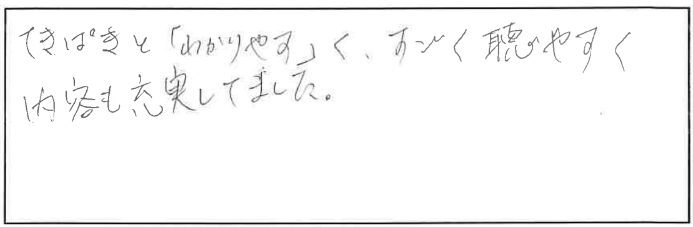 てきぱきと「わかりやす」く、すごく聴やすく
内容も充実してました。